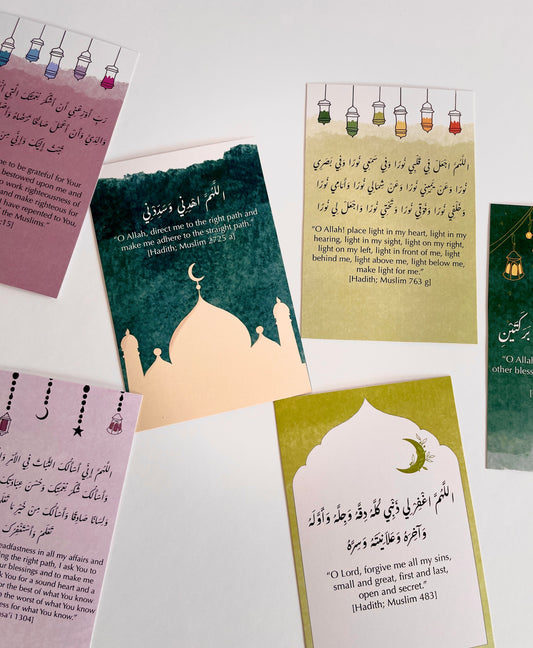 رَبِّ أَوْزِعْنِي أَنْ أَشْكُرَ نِعْمَتَكَ الَّتِي
وَالِدَيَّ وَأَنْ أَعْمَلَ صَالِحًا تَرْضَاهُ
تُبْتُ إِلَيْكَ وَإِنِّي مِنَ
me to be grateful for Your
bestowed upon me and
to work righteousness of
and make righteous for
I have repented to You,
the Muslims.”
:15]
اللَّهُمَّ اهْدِنِي وَسَدِّدْنِي
“O Allah, direct me to the right path and
make me adhere to the straight path.”
[Hadith; Muslim 2725 a]
اللَّهُمَّ اجْعَلْ فِي قَلْبِي نُورًا وَفِي سَمْعِي نُورًا وَفِي بَصَرِي
نُورًا وَعَنْ يَمِينِي نُورًا وَعَنْ شِمَالِي نُورًا وَأَمَامِي نُورًا
وَخَلْفِي نُورًا وَفَوْقِي نُورًا وَتَحْتِي نُورًا وَاجْعَلْ لِي نُورًا
“O Allah! place light in my heart, light in my
hearing, light in my sight, light on my right,
light on my left, light in front of me, light
behind me, light above me, light below me,
make light for me.”
[Hadith; Muslim 763 g]
بَرَكَتَيْنِ
“O Alla
other bless
[
اللَّهُمَّ إِنِّي أَسْأَلُكَ الثَّبَاتَ فِي الأَمْرِ
وَأَسْأَلُكَ شُكْرَ نِعْمَتِكَ وَحُسْنَ عِبَادَتِكَ
وَلِسَانًا صَادِقًا وَأَسْأَلُكَ مِنْ خَيْرِ مَا تَعْلَمُ
تَعْلَمُ وَأَسْتَغْفِرُكَ
eadfastness in all my affairs and
ng the right path, I ask You to
ur blessings and to make me
k You for a sound heart and a
or the best of what You know
the worst of what You know
ess for what You know.”
sa’i 1304]
اللَّهُمَّ اغْفِرْ لِي ذَنْبِي كُلَّهُ دِقَّهُ وَجِلَّهُ وَأَوَّلَهُ
وَآخِرَهُ وَعَلاَنِيَتَهُ وَسِرَّهُ
“O Lord, forgive me all my sins,
small and great, first and last,
open and secret.”
[Hadith; Muslim 483]